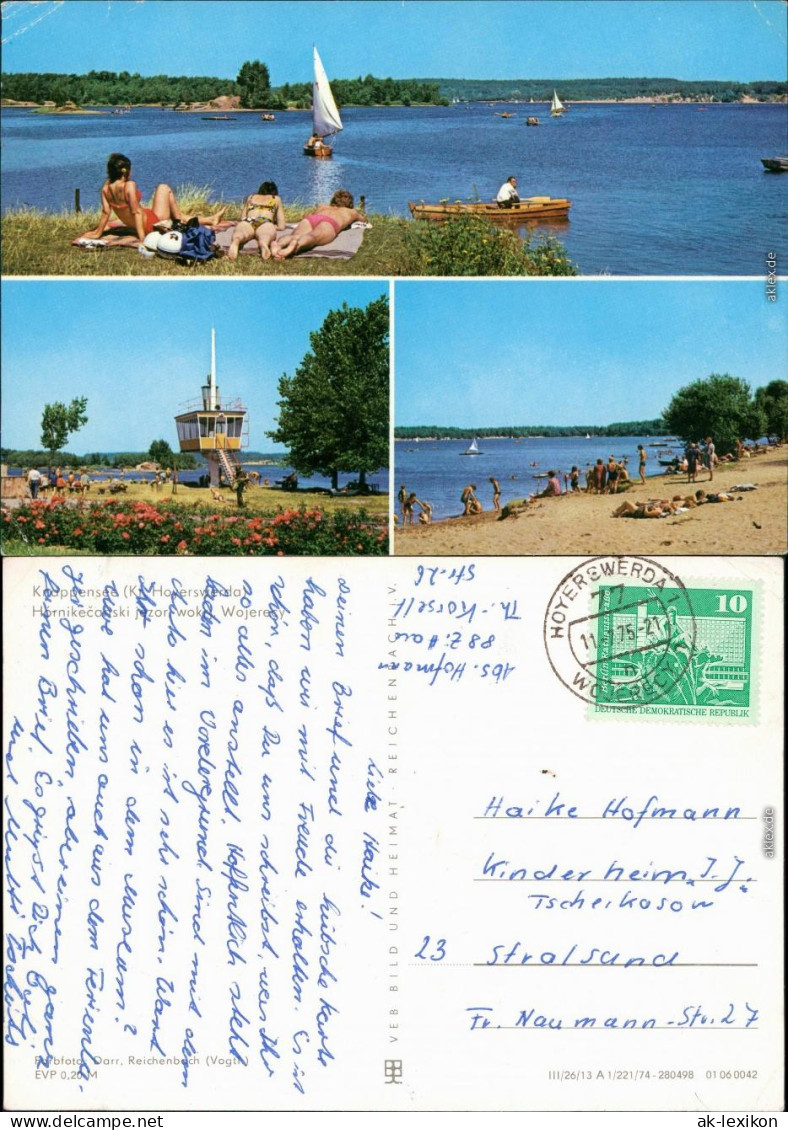 aklex.de
Knappensee (Kr. Hoyerswerda)
Hórnikečanski jězor, wokr. Wojerecy
Liebe Haike!
Deinen Brief und die hübsche Karte
haben wir mit Freude erhalten. Es ist
schön, daß Du uns schreibst, was Ihr
so alles anstellt. Hoffentlich steht
im Vordergrund. Sind mit dem
hier es ist sehr schön. Warst
Du schon in dem Museum?
hat uns auch aus dem
geschrieben, aber einen
keinen Brief. Es grüßt Dich ganz
und Mutti
Farbfoto: Darr, Reichenbach (Vogtl.)
EVP 0,20 M
VEB BILD UND HEIMAT · REICHENBACH i. V.
Abs. Hofmann
Th.-Körner
Str. 26
HOYERSWERDA 1
75-21
WOJERECY
10
DEUTSCHE DEMOKRATISCHE REPUBLIK
Haike Hofmann
Kinderheim „J. J.
Tscheikasow"
23 Stralsund
Fr. Naumann-Str. 27
aklex.de
III/26/13 A 1/221/74-280498 01 06 0042
www.delcampe.net
tpm1988
ak-lexikon